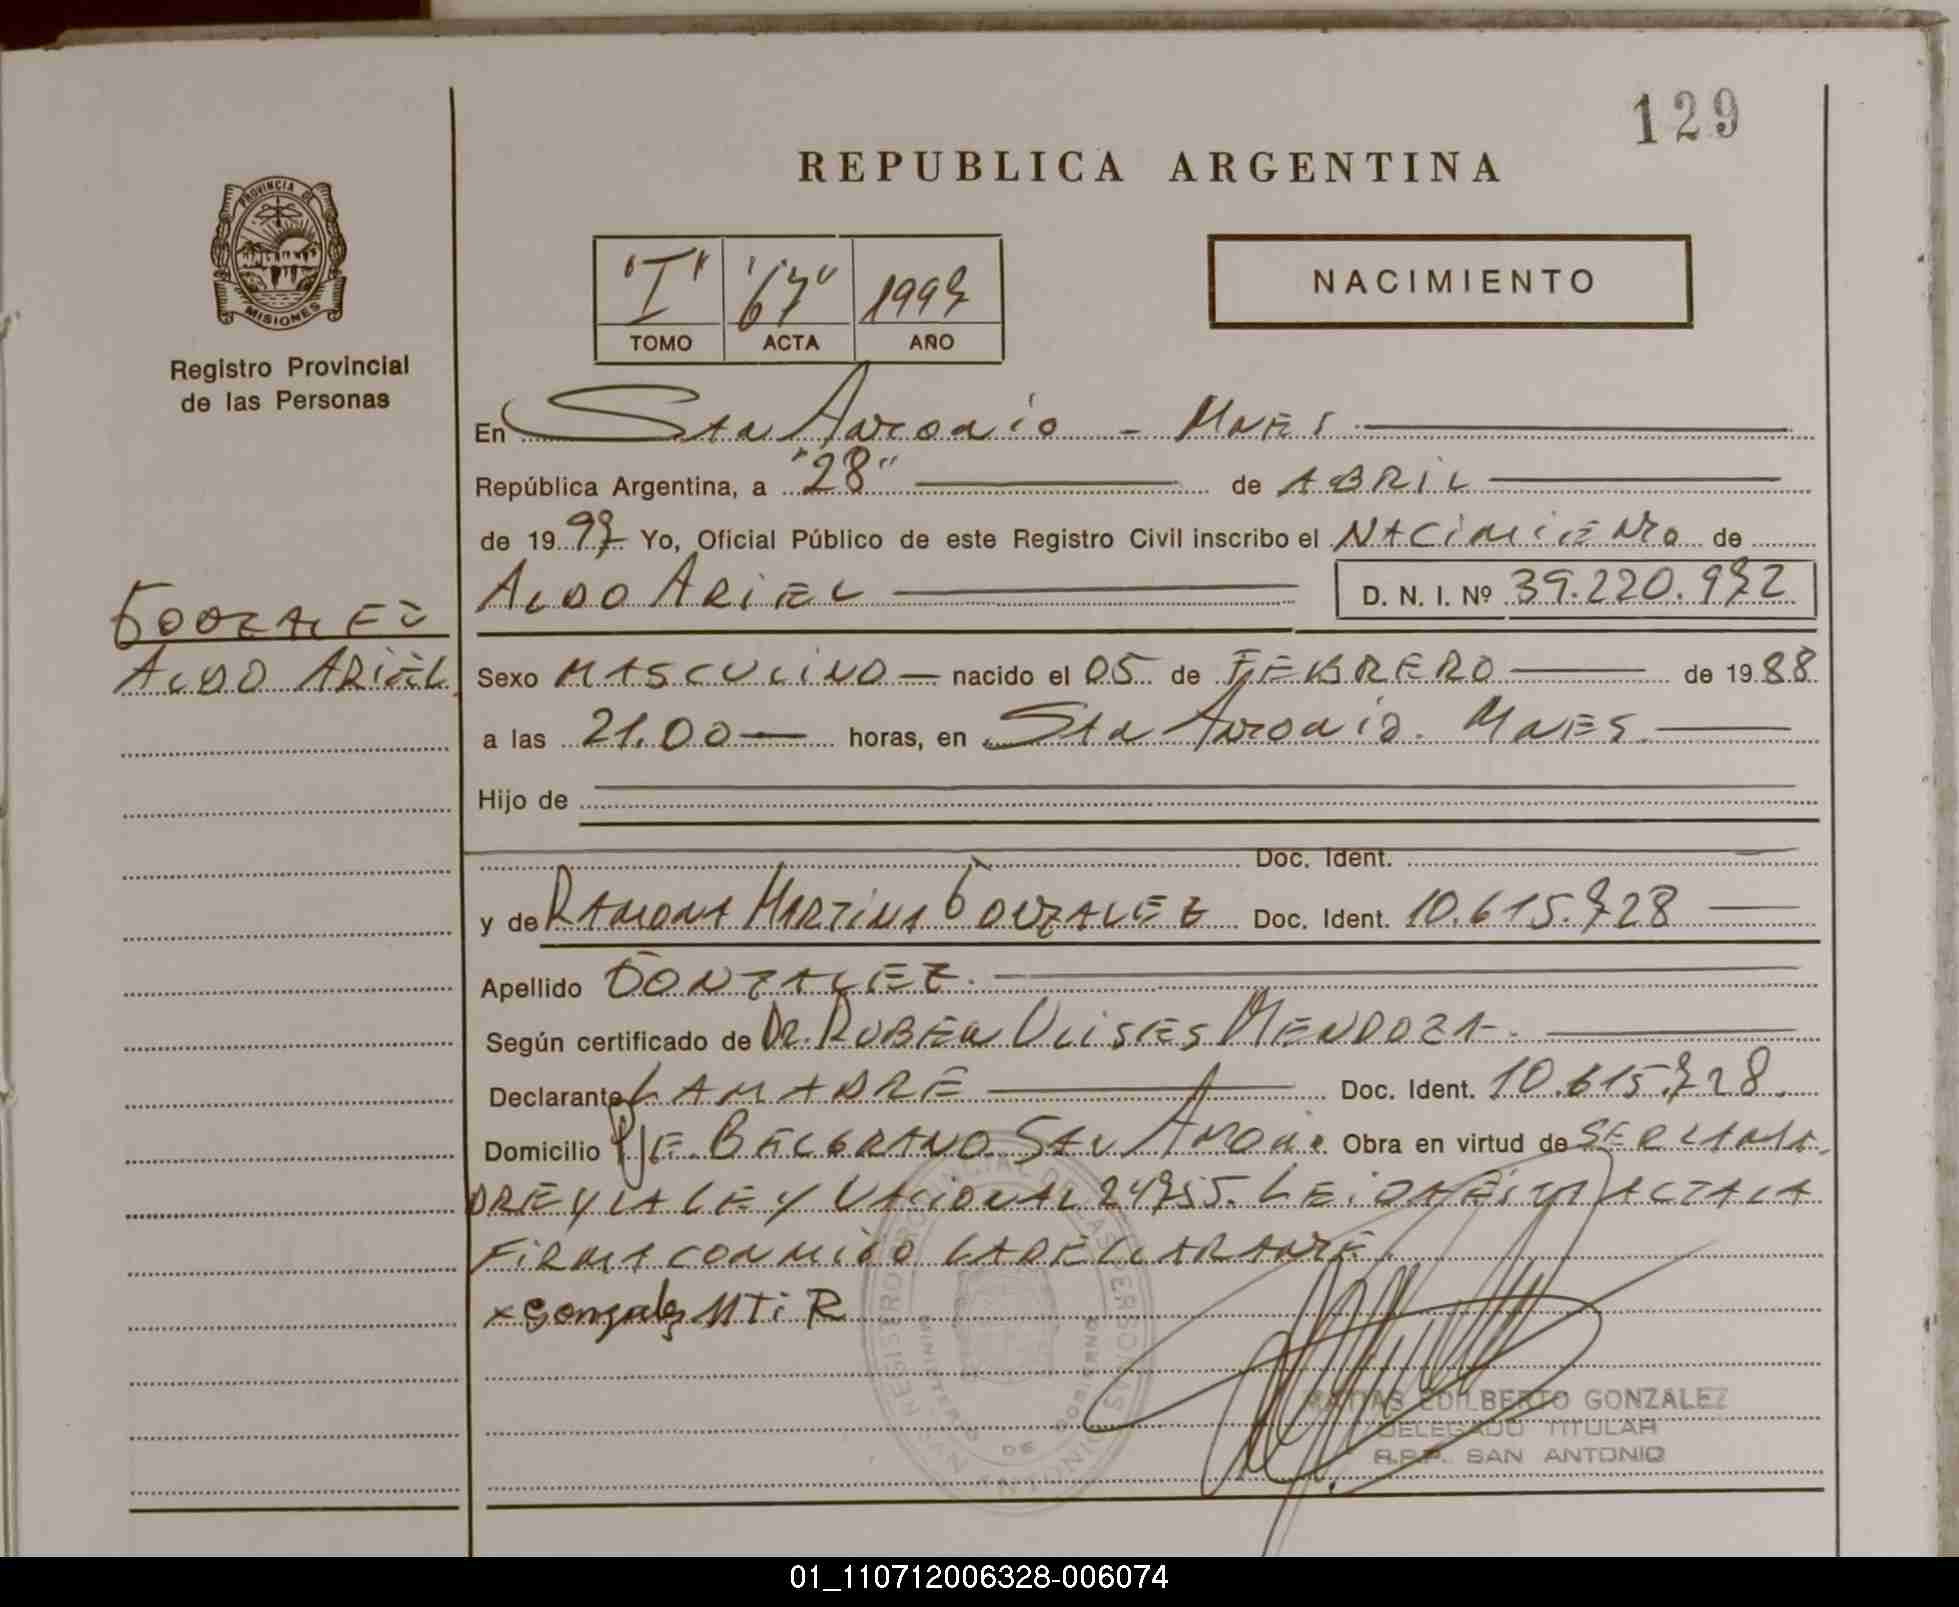 129
REPUBLICA ARGENTINA
PROVINCIA DE
MISIONES
Registro Provincial
de las Personas
"I" "67" 1997
TOMO ACTA AÑO
NACIMIENTO
En San Antonio - Mnes
República Argentina, a "28" de ABRIL
de 1997 Yo, Oficial Público de este Registro Civil inscribo el NACIMIENTO de
ALDO ARIEL D. N. I. Nº 39.220.972
GONZALEZ
ALDO ARIEL
Sexo MASCULINO nacido el 05 de FEBRERO de 1988
a las 21.00 horas, en San Antonio. MNES
Hijo de
Doc. Ident.
y de RAMONA MARTINA GONZALEZ Doc. Ident. 10.615.728
Apellido GONZALEZ.
Según certificado de DR. RUBEN ULISES MENDOZA.
Declarante LA MADRE Doc. Ident. 10.615.728.
Domicilio PJE. BELGRANO SAN ANTONIO Obra en virtud de SER LA MA
DRE Y LA LEY NACIONAL 24755. LEIDA ESTA ACTA LA
FIRMA CONMIGO LA DECLARANTE.
x Gonzalez MTi R
REGISTRO PROVINCIAL DE LAS PERSONAS
MINISTERIO DE GOBIERNO
MATIAS EDILBERTO GONZALEZ
DELEGADO TITULAR
R.P.P. SAN ANTONIO
01_110712006328-006074